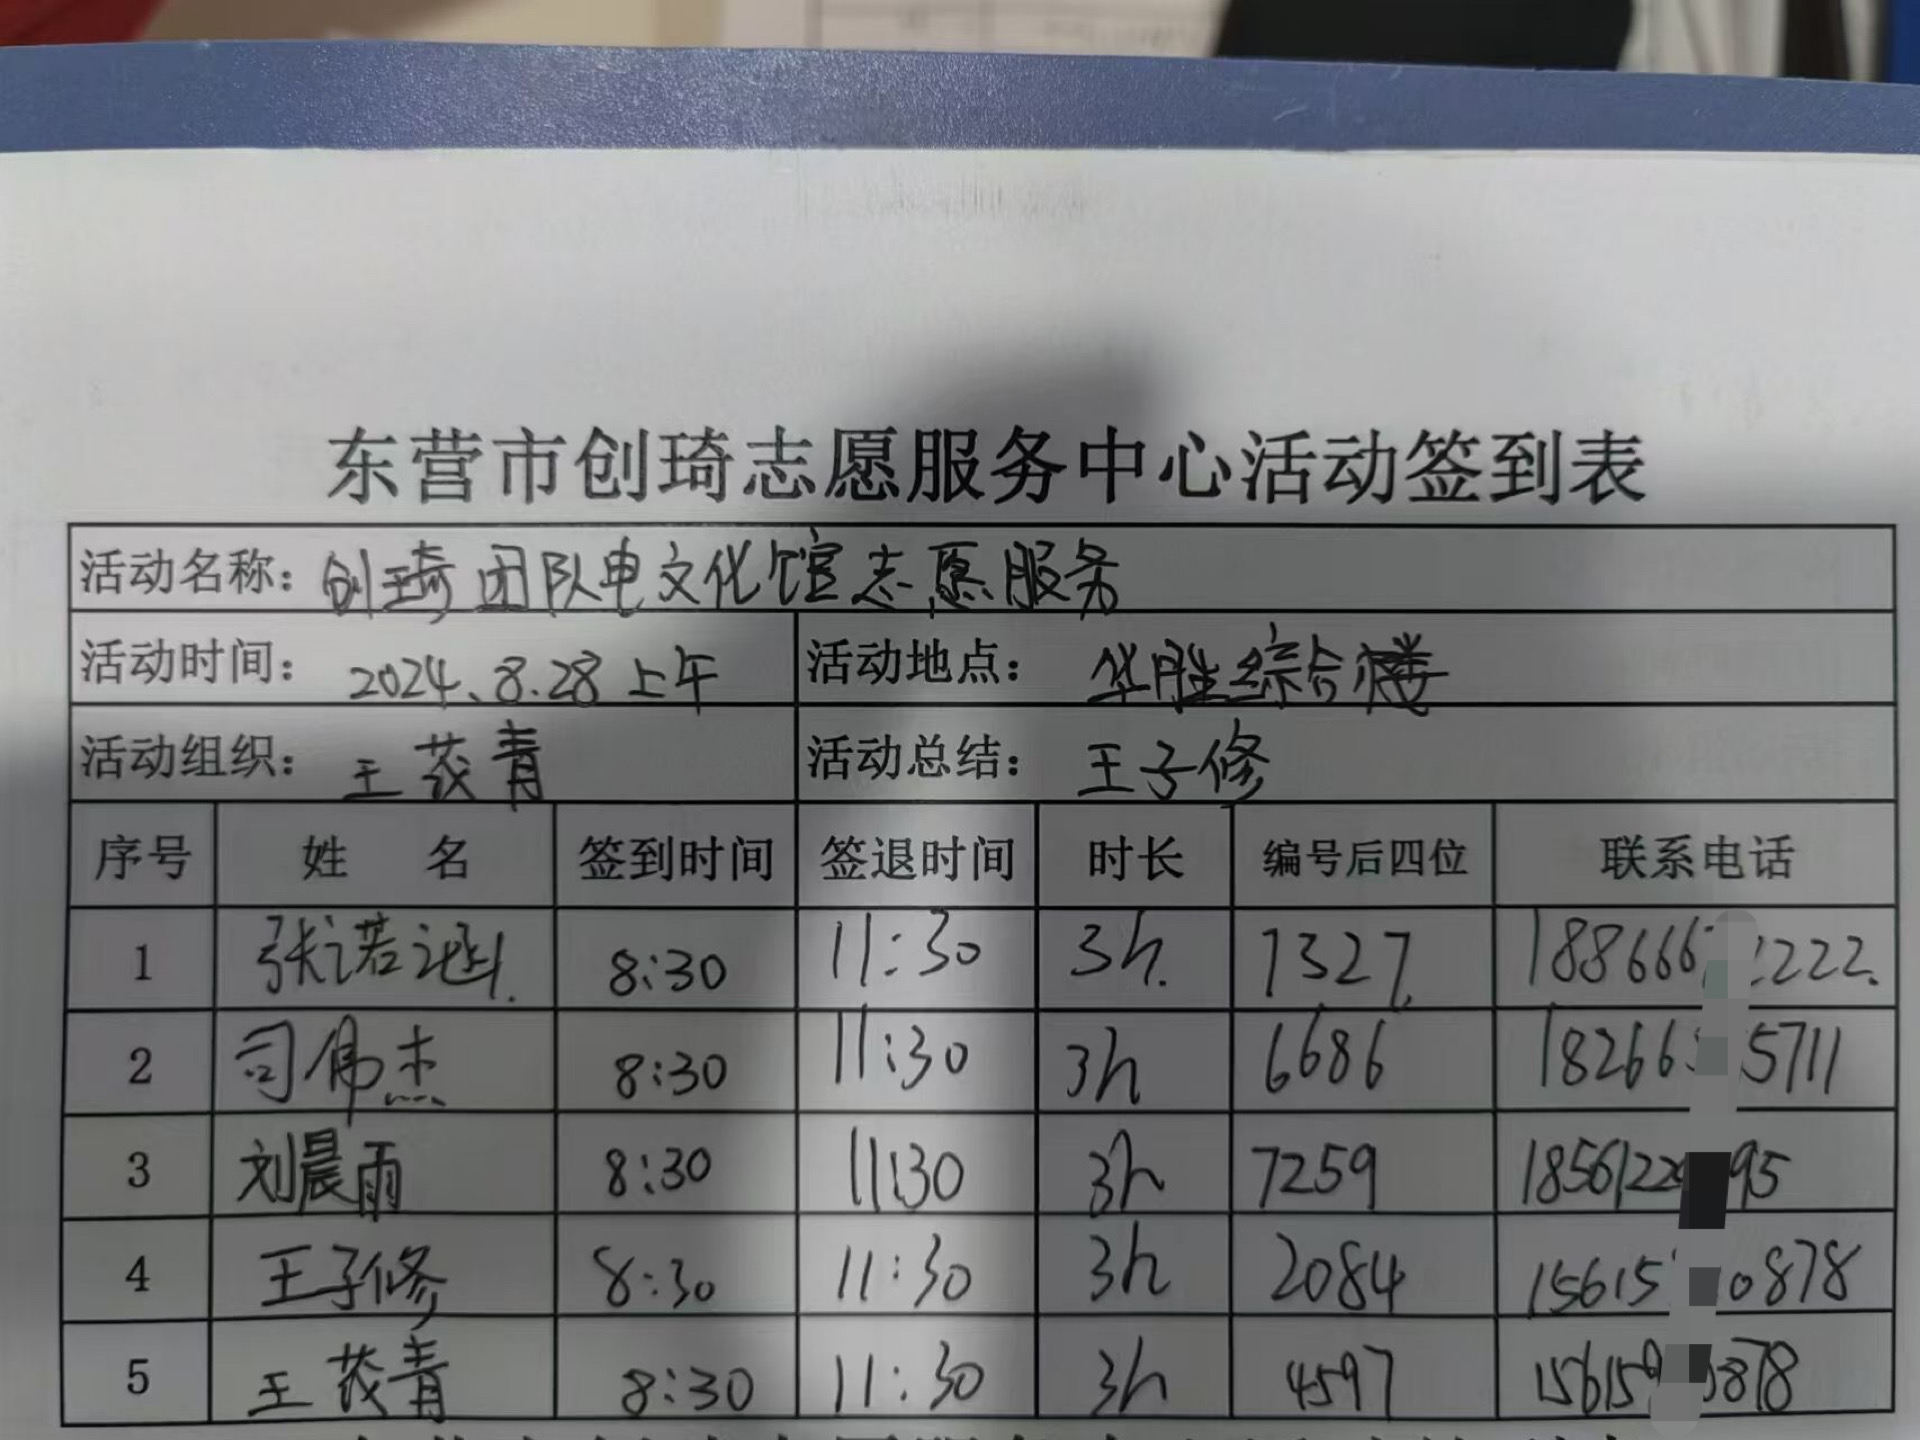 东营市创琦志愿服务中心活动签到表
活动名称：创琦团队电文化馆志愿服务
活动时间：2024.8.28上午 活动地点：华胜综合楼
活动组织：王茂青 活动总结：王子修
序号 姓 名 签到时间 签退时间 时长 编号后四位 联系电话
1 张诺涵 8:30 11:30 3h. 1327. 188666 2222.
2 司伟杰 8:30 11:30 3h 6686 18266 5711
3 刘晨雨 8:30 11:30 3h 7259 1856122 95
4 王子修 8:30 11:30 3h 2084 15615 0878
5 王茂青 8:30 11:30 3h 4597 15615 878